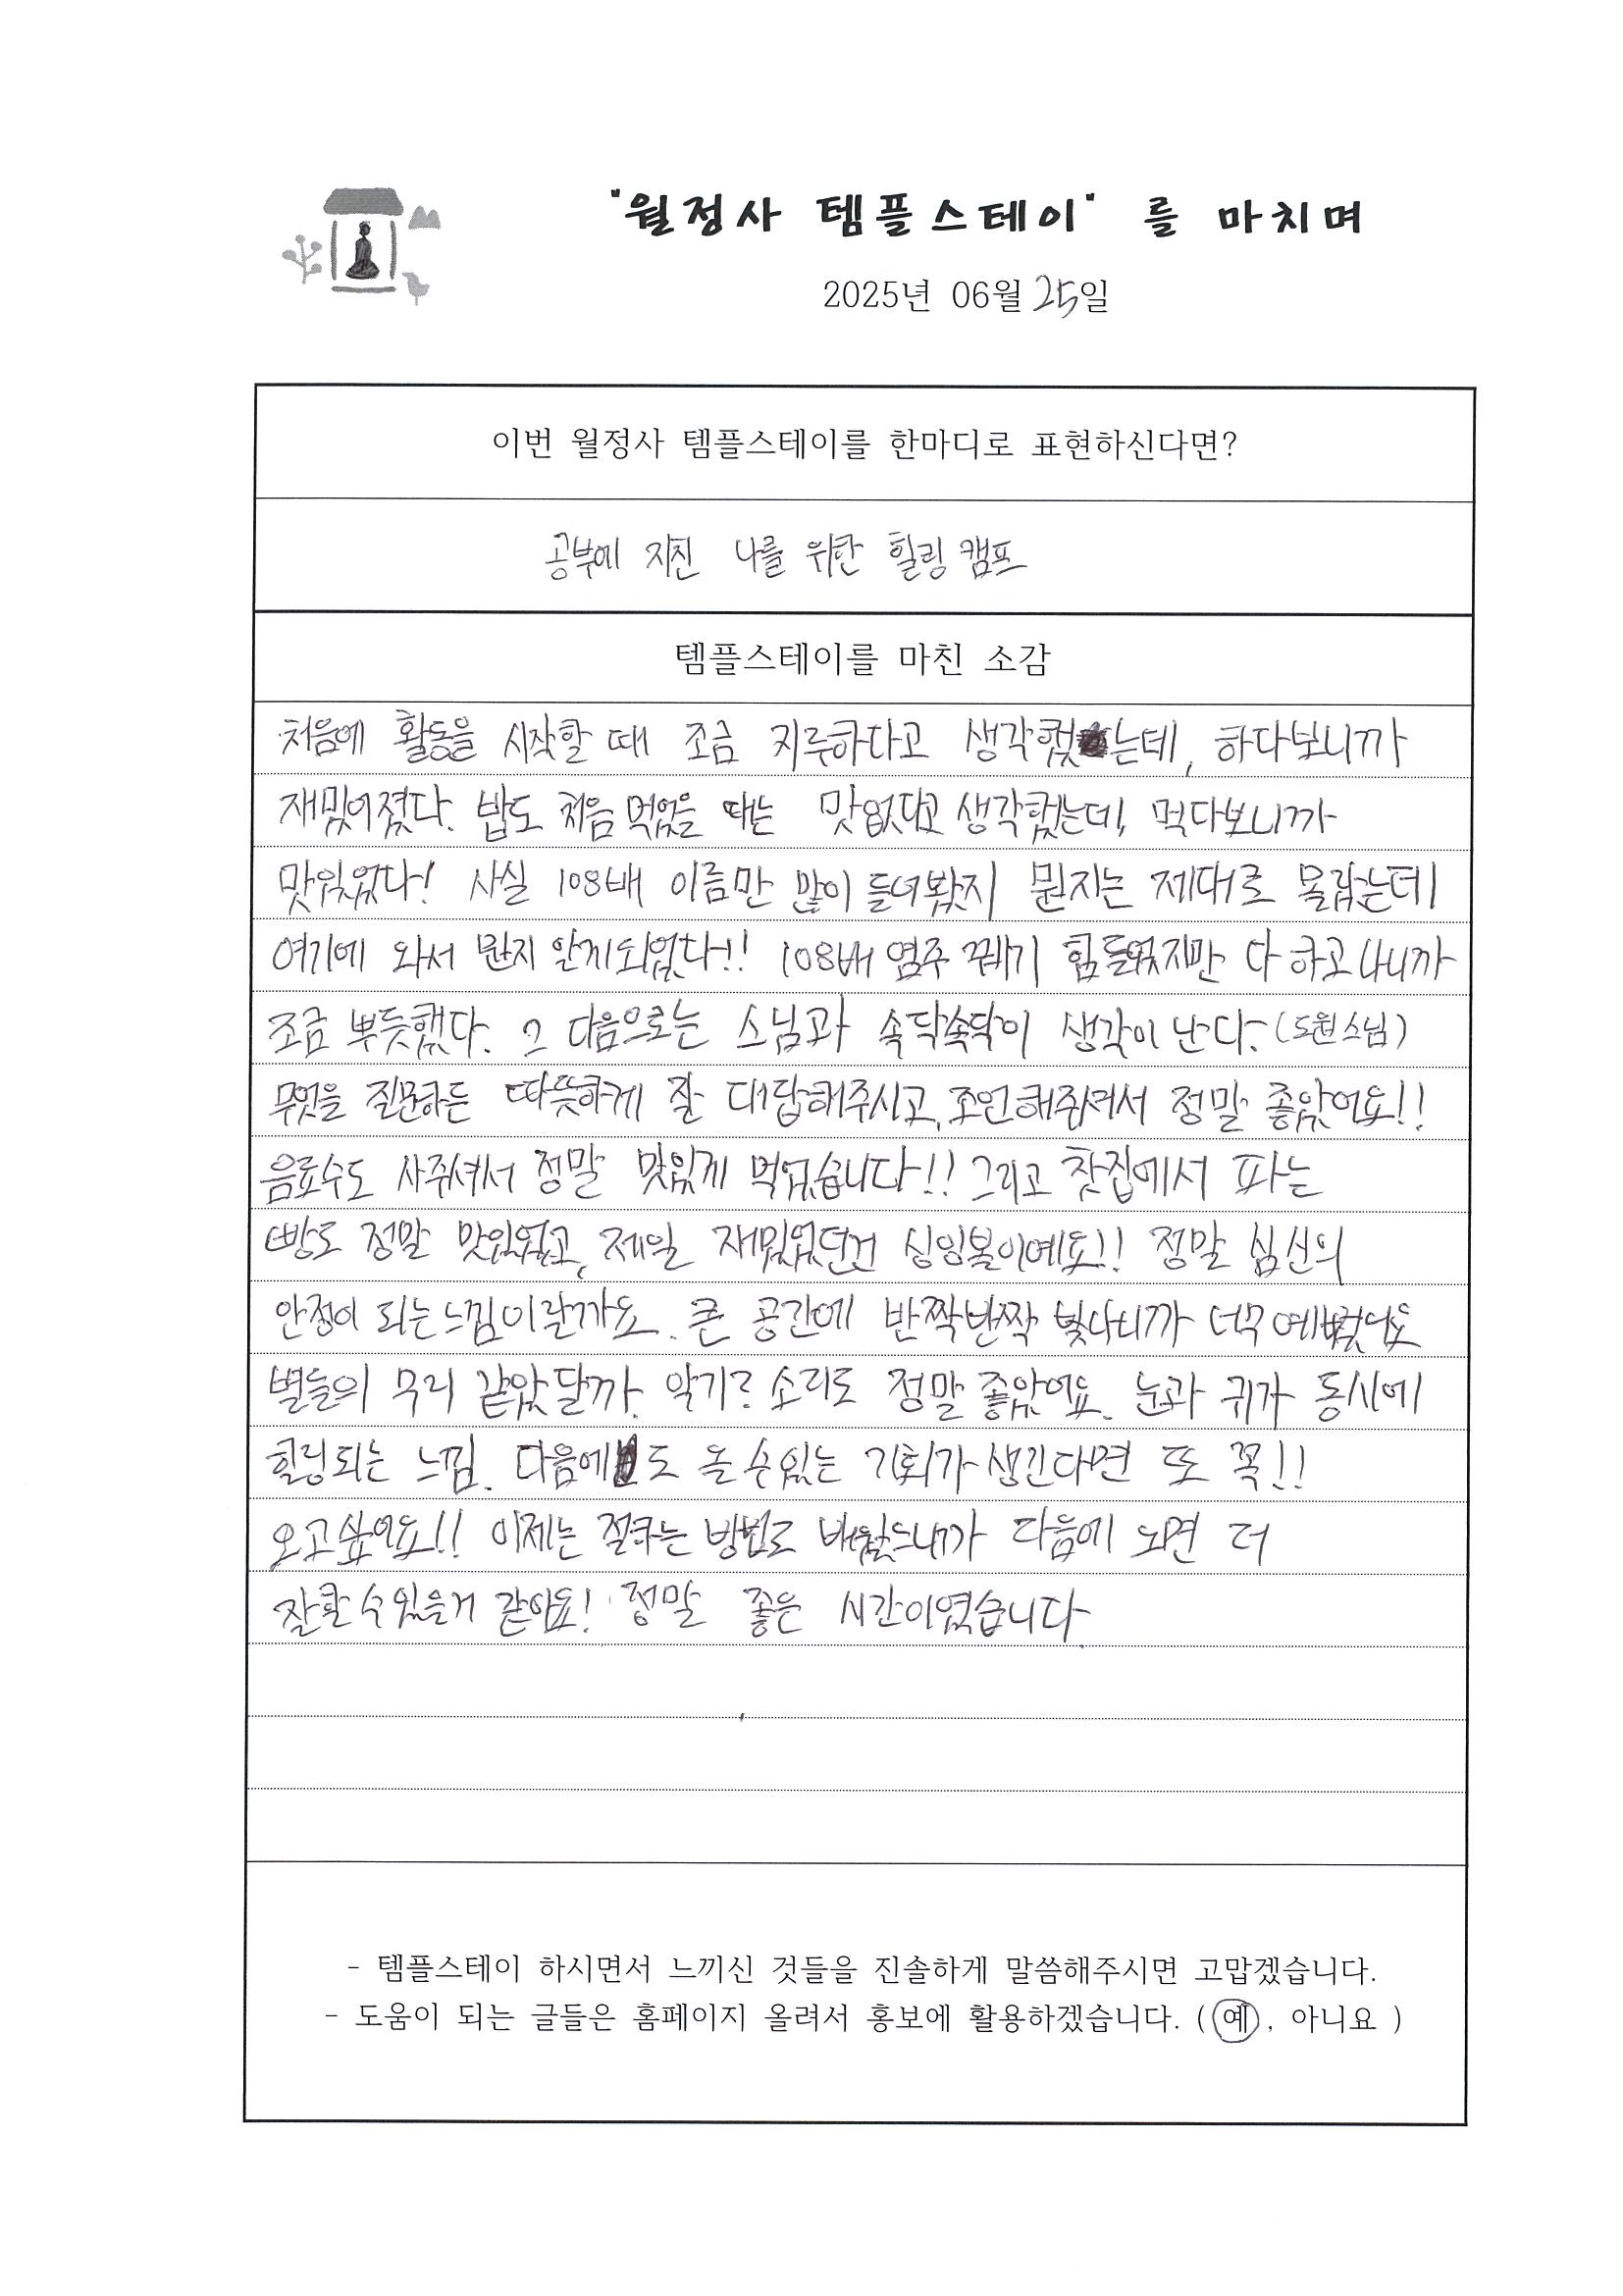 "월정사 템플스테이"를 마치며
2025년 06월 25일
이번 월정사 템플스테이를 한마디로 표현하신다면?
공부에 지친 나를 위한 힐링 캠프
템플스테이를 마친 소감
처음에 활동을 시작할 때 조금 지루하다고 생각했는데, 하다보니까
재밌어졌다. 밥도 처음 먹었을 때는 맛없다고 생각했는데, 먹다보니까
맛있었다! 사실 108배 이름만 많이 들어봤지 뭔지는 제대로 몰랐는데
여기에 와서 뭔지 알게되었다!! 108배 염주 꿰기 힘들었지만 다 하고 나니까
조금 뿌듯했다. 그 다음으로는 스님과 속닥속닥이 생각이 난다. (도원스님)
무엇을 질문하든 따뜻하게 잘 대답해주시고, 조언해주셔서 정말 좋았어요!!
음료수도 사주셔서 정말 맛있게 먹었습니다!! 그리고 찻집에서 파는
빵도 정말 맛있었고, 제일 재밌었던건 싱잉볼이예요!! 정말 심신의
안정이 되는 느낌이랄까요. 큰 공간에 반짝반짝 빛나니까 너무 예뻤어요
별들의 무리 같았달까. 악기? 소리도 정말 좋았어요. 눈과 귀가 동시에
힐링되는 느낌. 다음에도 올 수 있는 기회가 생긴다면 또 꼭!!
오고싶어요!! 이제는 절하는 방법도 다음에 오면 더
잘할 수 있을거 같아요! 정말 좋은 시간이였습니다.
- 템플스테이 하시면서 느끼신 것들을 진솔하게 말씀해주시면 고맙겠습니다.
- 도움이 되는 글들은 홈페이지 올려서 홍보에 활용하겠습니다. ( 예 , 아니요 )